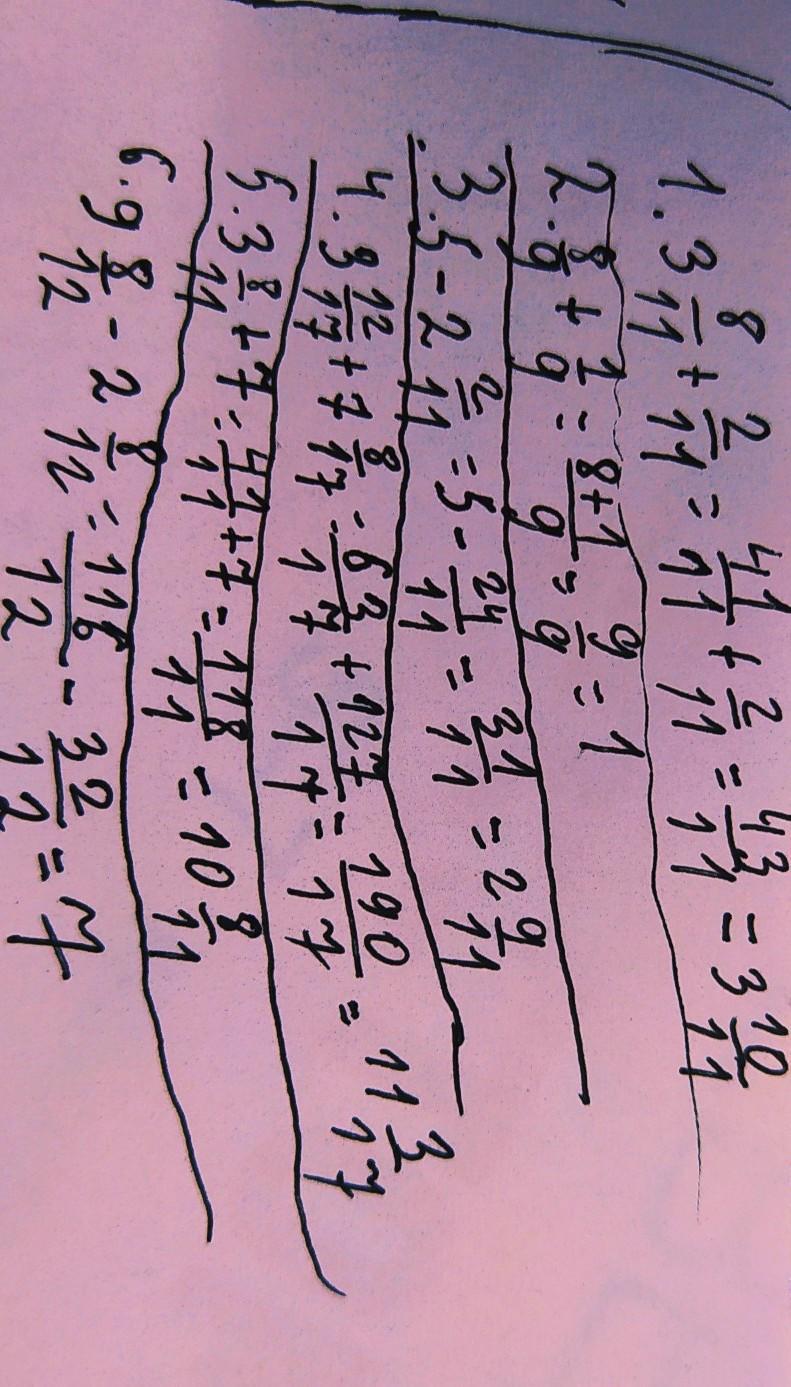 1. 3 8/11 + 2/11 = 41/11 + 2/11 = 43/11 = 3 10/11
2. 8/9 + 1/9 = 8+1/9 = 9/9 = 1
3. 5 - 2 2/11 = 5 - 24/11 = 31/11 = 2 9/11
4. 3 12/17 + 7 8/17 = 63/17 + 127/17 = 190/17 = 11 3/17
5. 3 8/11 + 7 = 41/11 + 7 = 118/11 = 10 8/11
6. 9 8/12 - 2 8/12 = 116/12 - 32/12 = 7